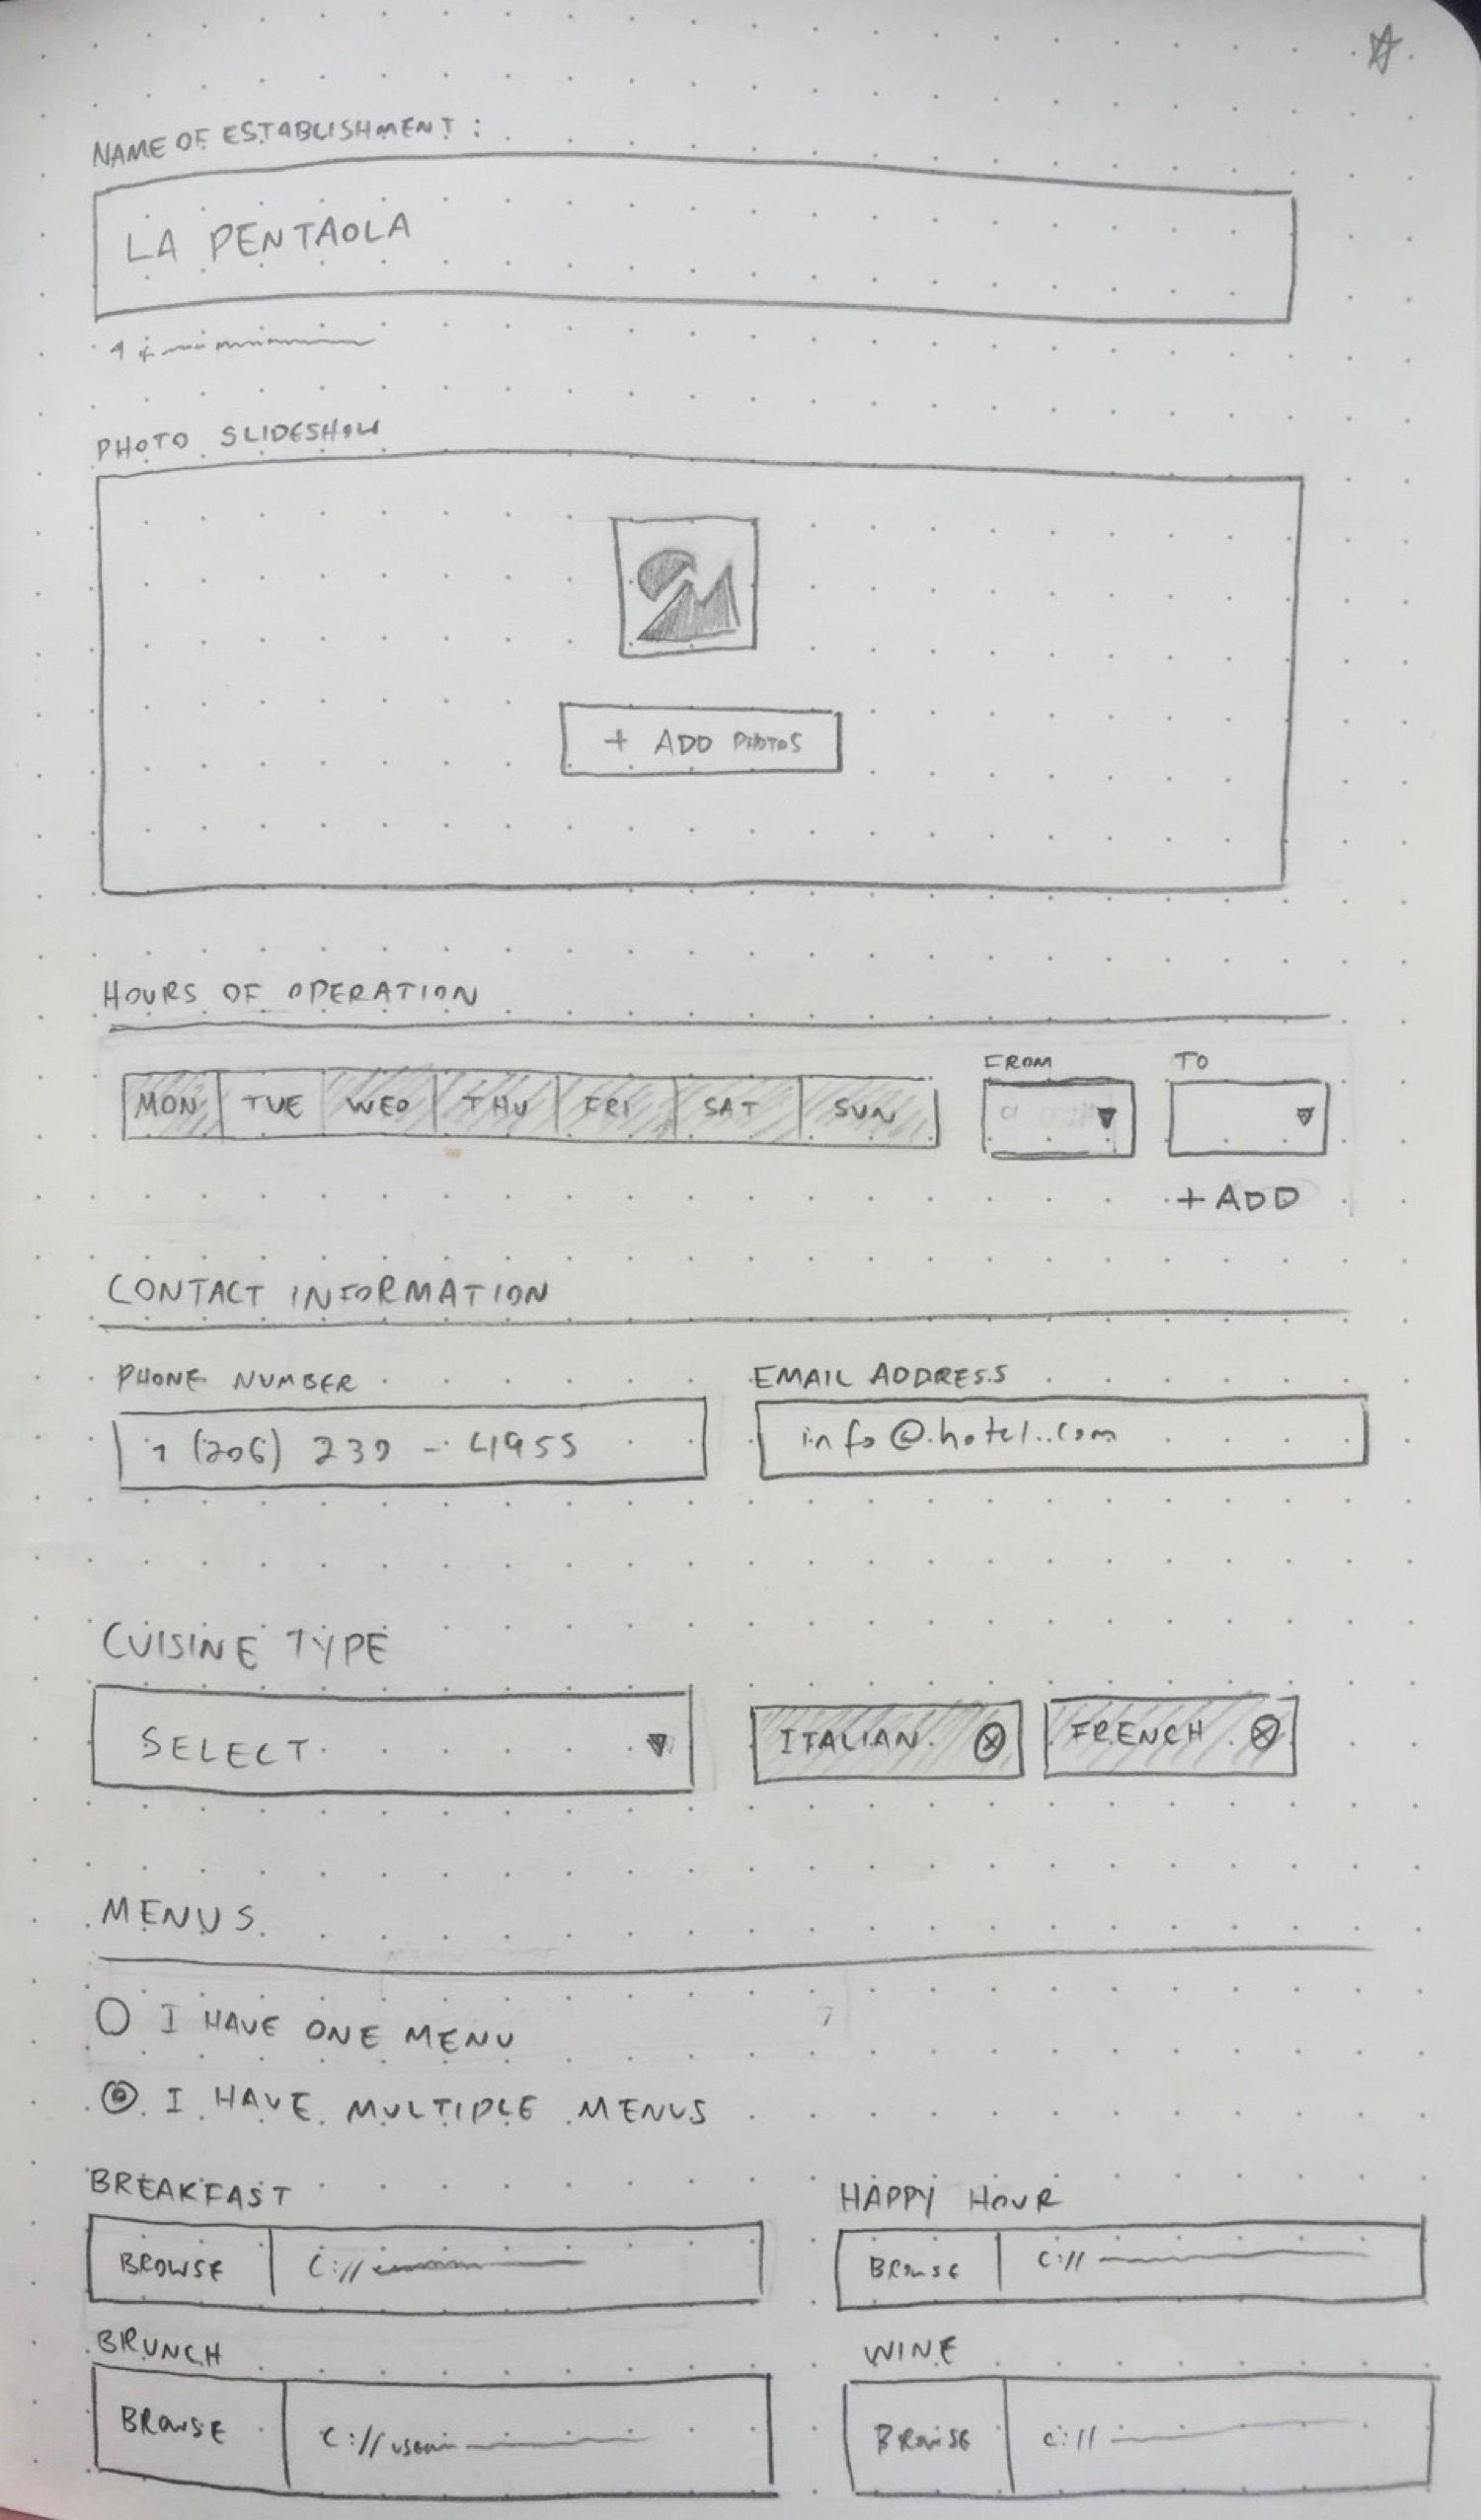 NAME OF ESTABLISHMENT:
LA PENTAOLA
PHOTO SLIDESHOW
+ ADD PHOTOS
HOURS OF OPERATION
FROM TO
MON TUE WED THU FRI SAT SUN
+ ADD
CONTACT INFORMATION
PHONE NUMBER EMAIL ADDRESS
1 (206) 239 - 4955 info@hotel.com
CUISINE TYPE
SELECT ITALIAN FRENCH
MENUS
I HAVE ONE MENU
I HAVE MULTIPLE MENUS
BREAKFAST HAPPY HOUR
BROWSE C:// BROWSE C://
BRUNCH WINE
BROWSE C://user BROWSE C://